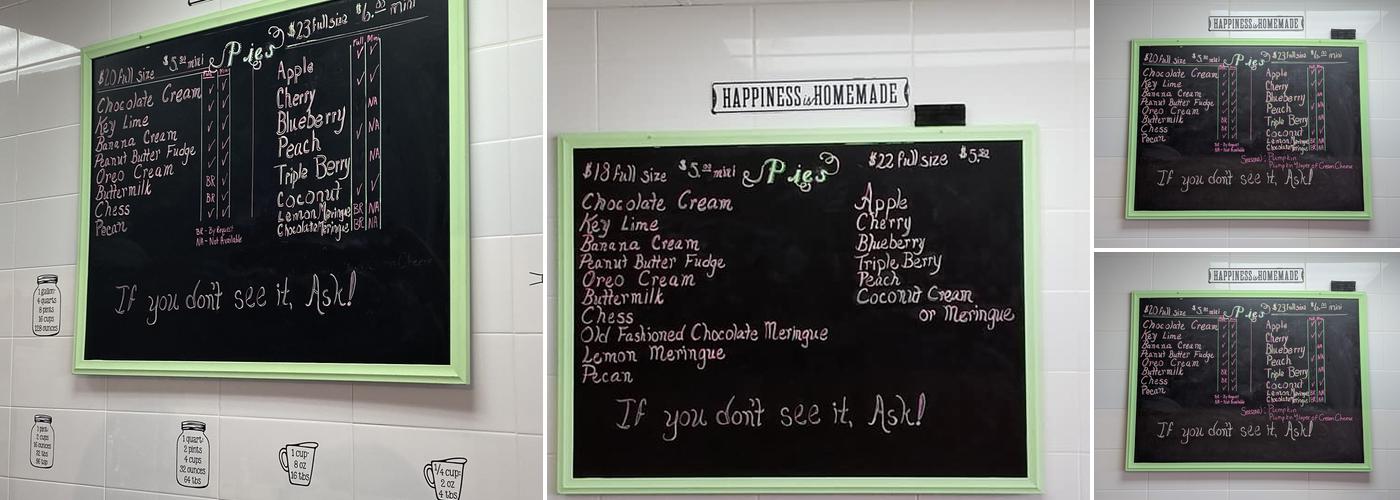 $20 Full size $5.00 mini Pies $23 Full size $6.00 mini
Full Mini
Full Mini
Chocolate Cream
Key Lime
Banana Cream
Peanut Butter Fudge
Oreo Cream
Buttermilk BR
Chess BR
Pecan
BR - By Request
NA - Not Available
Apple
Cherry NA
Blueberry NA
Peach
Triple Berry NA
Coconut
Lemon Meringue BR NA
Chocolate Meringue BR NA
If you don't see it, Ask!
1 gallon:
4 quarts
8 pints
16 cups
128 ounces
1 pint:
2 cups
16 ounces
32 tbs
96 tsp
1 quart:
2 pints
4 cups
32 ounces
64 tbs
1 cup:
8 oz
16 tbs
1/4 cup:
2 oz
4 tbs
HAPPINESS is HOMEMADE
$18 Full size $5.00 mini Pies $22 Full size $5.50
Chocolate Cream
Key Lime
Banana Cream
Peanut Butter Fudge
Oreo Cream
Buttermilk
Chess
Old Fashioned Chocolate Meringue
Lemon Meringue
Pecan
Apple
Cherry
Blueberry
Triple Berry
Peach
Coconut Cream
or Meringue
If you don't see it, Ask!
HAPPINESS is HOMEMADE
$20 Full size $5.00 mini Pies $23 Full size $6.00 mini
Chocolate Cream
Key Lime
Banana Cream
Peanut Butter Fudge
Oreo Cream
Buttermilk BR
Chess BR
Pecan
BR - By Request
NA - Not Available
Apple
Cherry
Blueberry NA
Peach
Triple Berry NA
Coconut
Lemon Meringue BR NA
Chocolate Meringue BR NA
Seasonal: Pumpkin
Pumpkin w/layer of Cream Cheese
If you don't see it, Ask!
HAPPINESS is HOMEMADE
$20 Full size $5.00 mini Pies $23 Full size $6.00 mini
Chocolate Cream
Key Lime
Banana Cream
Peanut Butter Fudge
Oreo Cream
Buttermilk BR
Chess BR
Pecan
BR - By Request
NA - Not Available
Apple
Cherry
Blueberry NA
Peach
Triple Berry NA
Coconut
Lemon Meringue BR NA
Chocolate Meringue BR NA
Seasonal: Pumpkin
Pumpkin w/layer of Cream Cheese
If you don't see it, Ask!